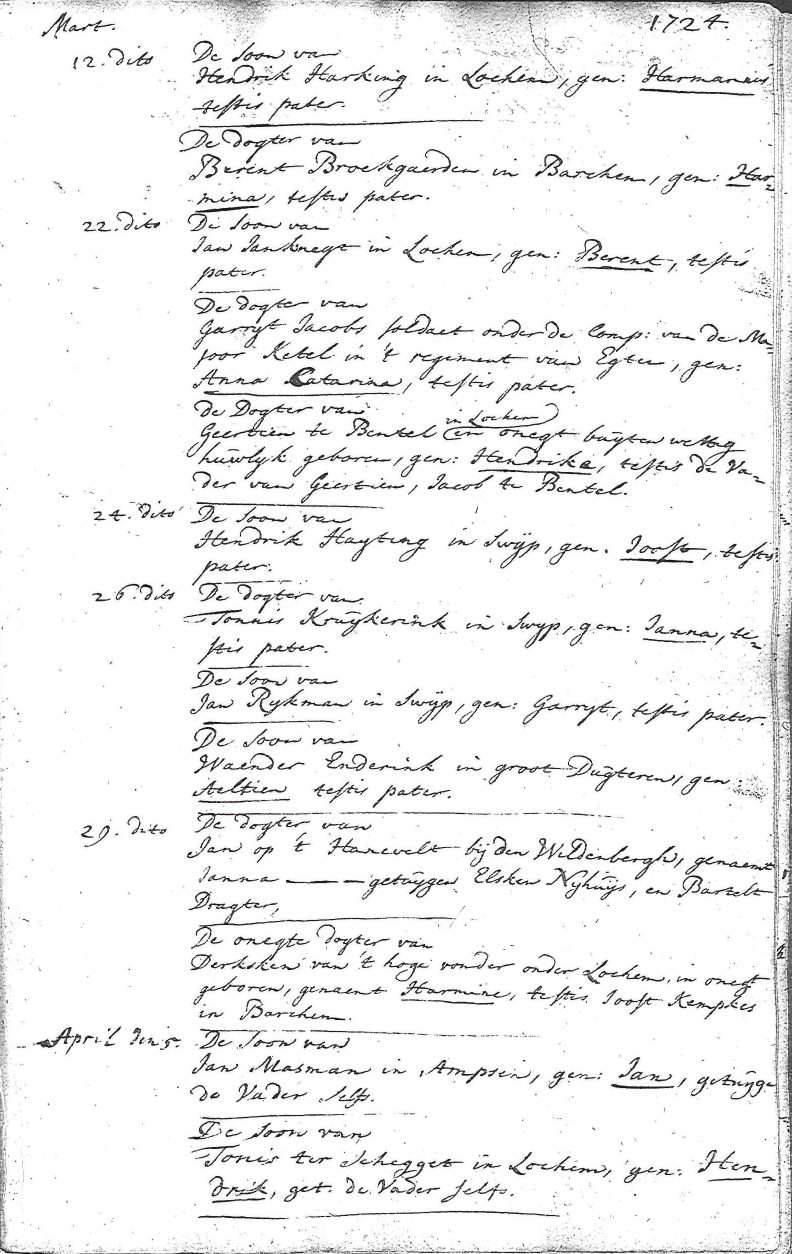 Mart. 1724.
12. dito De soon van
Hendrik Harking in Lochem, gen: Harmannus
testis pater.
De dogter van
Berent Broekgaerden in Barchem, gen: Har-
mina, testis pater.
22. dito De soon van
Jan Janknegt in Lochem, gen: Berent, testis
pater.
De dogter van
Garryt Jacobs soldaet onder de Comp: van de Ma-
joor Ketel in 't regiment van Egter, gen:
Anna Catarina, testis pater.
de Dogter van
Geertien te Bentel (in Lochem) in onegt buyten wettig
huwlyk geboren, gen: Hendrika, testis de Va-
der van Geertien, Jacob te Bentel.
24. dito De soon van
Hendrik Hayting in Swÿp, gen. Joost, testis
pater.
26. dito De dogter van
Tonnis Kruÿkerink in Swyp, gen: Janna, te-
stis pater.
De soon van
Jan Rykman in Swÿp, gen: Garryt, testis pater.
De soon van
Waender Enderink in groot Dugteren, gen:
Aeltien testis pater.
29. dito De dogter van
Jan op 't Harevelt bij den Wildenbergh, genaemt
Janna — getuygen Elsken Nyhuÿs, en Bartelt
Dragter,
De onegte dogter van
Derksken van 't hoge vonder onder Lochem, in onegt
geboren, genaemt Harmine, testis Joost Kempkes
in Barchem.
April den 5. De soon van
Jan Masman in Ampsen, gen: Jan, getuÿge
de Vader selfs.
De soon van
Tonis ter Schegget in Lochem, gen: Hen-
drik, get. de Vader selfs.